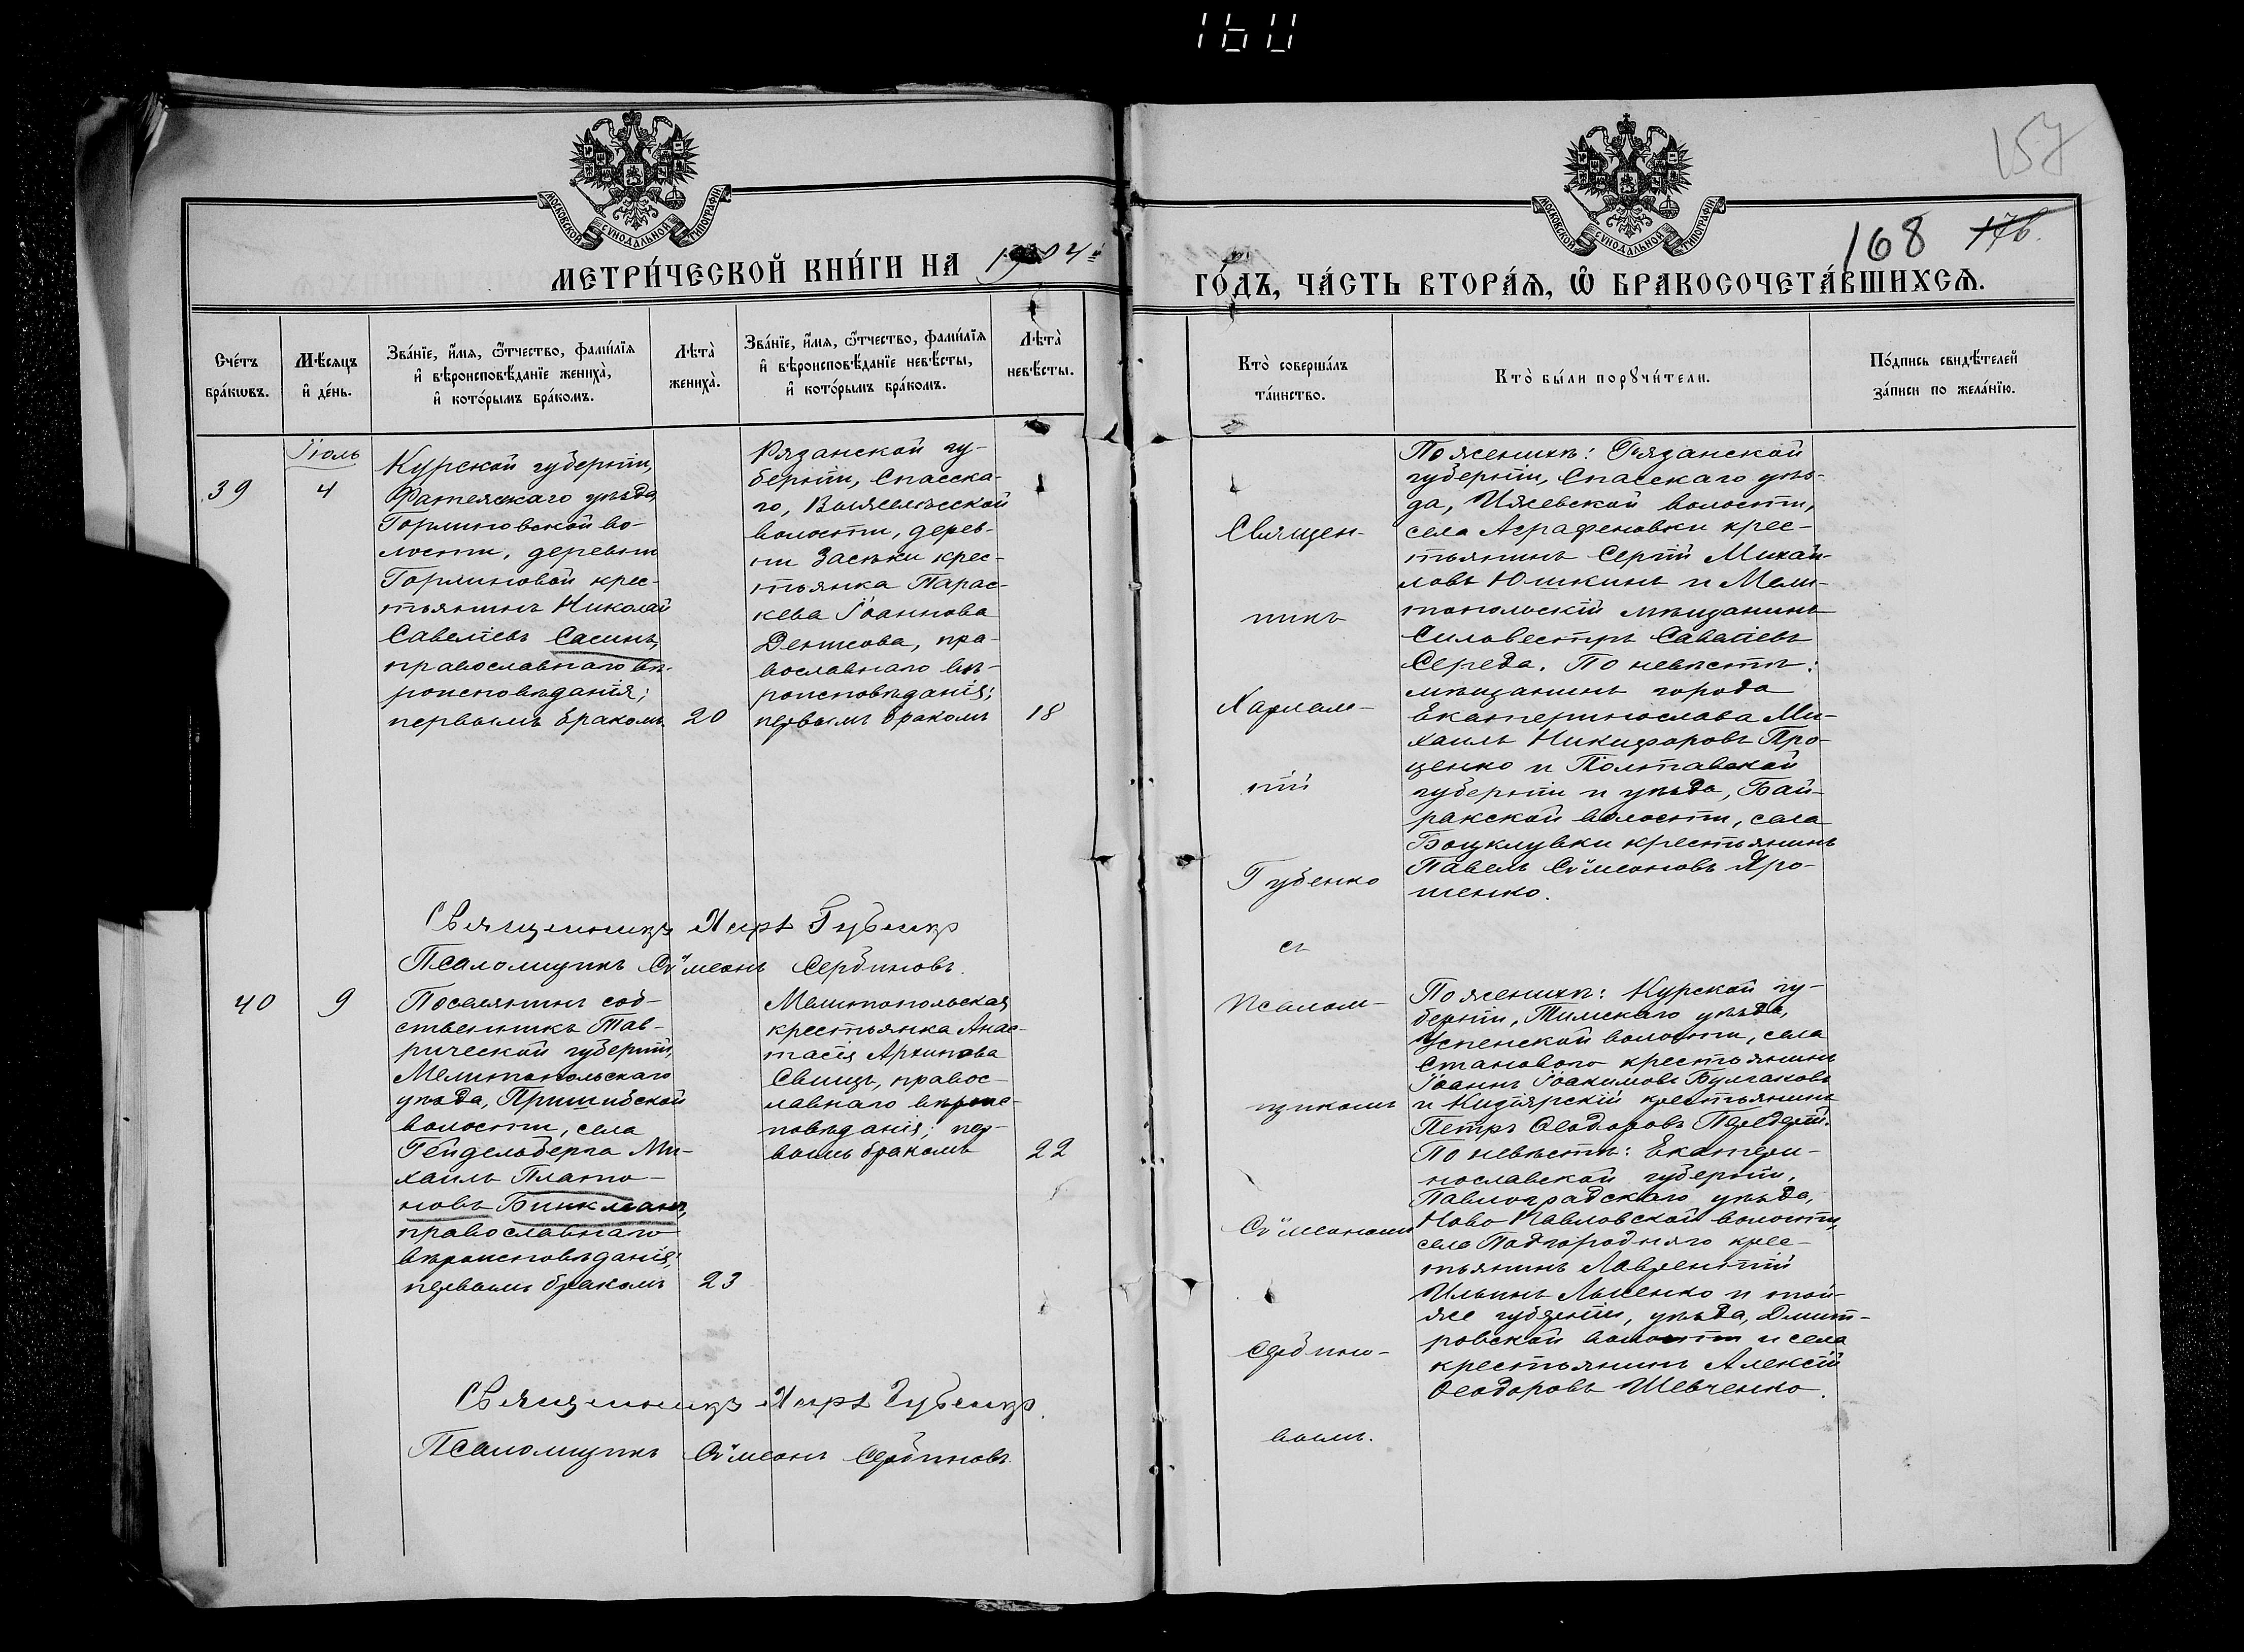 160
157
168 176.
МОСКОВСКОЙ СѴНОДАЛЬНОЙ ТИПОГРАФІИ
МОСКОВСКОЙ СѴНОДАЛЬНОЙ ТИПОГРАФІИ
МЕТРИ́ЧЕСКОЙ КНИ́ГИ НА 1904й
ГО́ДЪ, ЧА́СТЬ ВТОРА́Ѧ, Ѡ҆ БРАКОСОЧЕТА́ВШИХСѦ.
Сче́тъ
бра́кѡвъ.
Мѣ́сяцъ
и҆ де́нь.
Зва́нїе, и҆́мя, ѻ҆́тчество, фами́лїя
и҆ вѣроисповѣ́данїе жениха̀,
и҆ кото́рымъ бра́комъ.
Лѣта̀
жениха̀.
Зва́нїе, и҆́мя, ѻ҆́тчество, фами́лїя
и҆ вѣроисповѣ́данїе невѣ́сты,
и҆ кото́рымъ бра́комъ.
Лѣта̀
невѣ́сты.
Кто̀ соверша́лъ
та́инство.
Кто̀ бы́ли порꙋчи́тели.
По́дпись свидѣ́телей
за́писи по жела́нїю.
39
Іюль
4
Курской губерніи,
Фатежскаго уѣзда,
волости, деревни
крес-
тьянинъ Николай
Савеліевъ Сасинъ,
православнаго вѣ-
роисповѣданія;
первымъ бракомъ
20
Рязанской гу-
берніи, Спасска-
го,
волости, дерев-
ни Засѣки крес-
тьянка Парас-
кева Іоаннова
Денисова, пра-
вославнаго вѣ-
роисповѣданія;
первымъ бракомъ
18
Священ-
никъ
Харлам-
пій
Губенко
съ
псалом-
щикомъ
Сѷмеономъ
Сербино-
вымъ.
По женихѣ: Рязанской
губерніи, Спасскаго уѣз-
да, Ижевской волости,
села Аграфеновки крес-
тьянинъ Сергій Михай-
ловъ Юшкинъ и Мели-
топольскій мѣщанинъ
Силовестръ Саватіевъ
Середа. По невѣстѣ:
мѣщанинъ города
Екатеринослава Ми-
хаилъ Никифоровъ Про-
ценко и Полтавской
губерніи и уѣзда, Бай-
ракской волости, села
Боцкдувки крестьянинъ
Павелъ Сѷмеоновъ Яро-
шенко.
Священникъ Хар. Губенко
Псаломщикъ Сѷмеонъ Сербиновъ.
40
9
Поселянинъ соб-
ственникъ Тав-
рической губерніи,
Мелитопольскаго
уѣзда, Пришибской
волости, села
Гейдельберга Ми-
хаилъ Плато-
новъ Бинкманъ,
православнаго
вѣроисповѣданія;
первымъ бракомъ
23
Мелитопольская
крестьянка Анас-
тасія Архипова
Свищъ, правос-
лавнаго вѣроис-
повѣданія; пер-
вымъ бракомъ
22
По женихѣ: Курской гу-
берніи, Тимскаго уѣзда,
Успенской волости, села
Становаго крестьянинъ
Іоаннъ Іоакимовъ Булгаковъ
и Кизіярскій крестьянинъ
Петръ Ѳеодоровъ Передерій.
По невѣстѣ: Екатери-
нославской губерніи,
Павлоградскаго уѣзда,
Ново Павловской волости,
села Подгородняго крес-
тьянинъ Лаврентій
Ильинъ Лысенко и той-
же губерніи, уѣзда, Дмит-
ровской волости и села
крестьянинъ Алексій
Ѳеодоровъ Шевченко.
Священникъ Хар. Губенко.
Псаломщикъ Сѷмеонъ Сербиновъ.